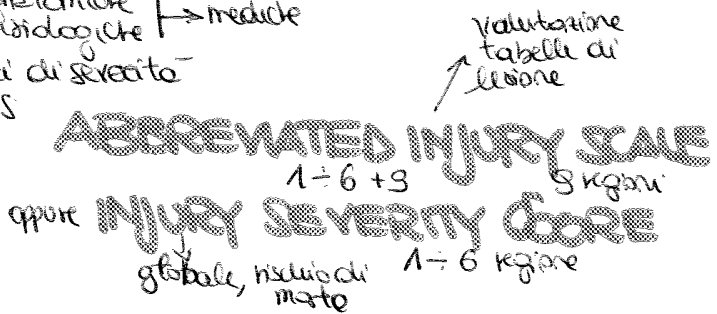 → mediche
siologiche
di severità
valutazione
tabelle di
lesione
ABBREVIATED INJURY SCALE
1÷6 +9
9 regioni
oppure INJURY SEVERITY SCORE
globale, rischio di
morte
1÷6 regione